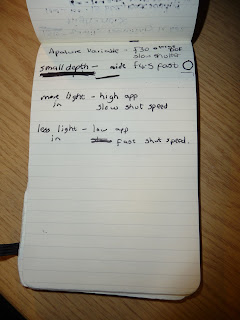 Aperture Variable - f30
slow shutter
small depth - wide f4.5 fast
more light - high app
in slow shut speed
less light - low app
in fast shut speed.